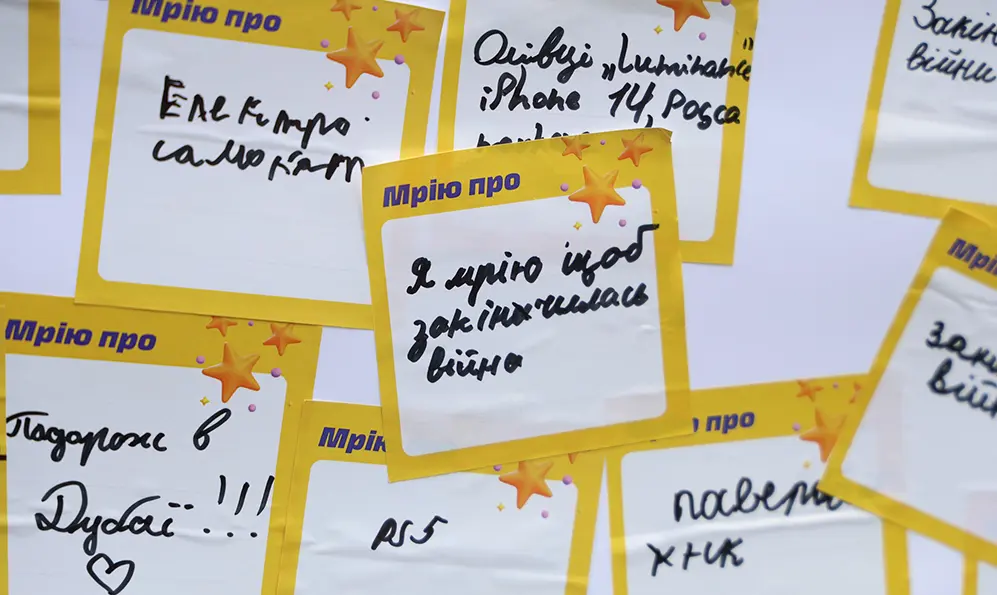 Мрію про
Електро
самокат
Олівці „Luminance"
iPhone 14,
Закін
війни
Мрію про
Я мрію щоб
закінчилась
війна
Мрію про
Подорож в
Дубаї!!!
Мрію
PS5
про
ХНИК
Мрі
війн